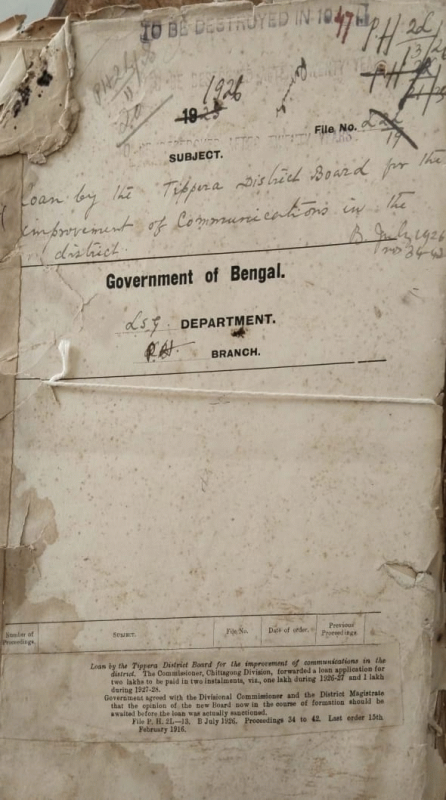 TO BE DESTROYED IN 1947
P.H. 2L
13/26
1926
1923
File No.
SUBJECT.
Loan by the Tippera District Board for the
improvement of Communications in the
district.
B. July 1926
nos 34-42
Government of Bengal.
L.S.G. DEPARTMENT.
P.H. BRANCH.
Number of Proceedings.
SUBJECT.
File No.
Date of order.
Previous Proceedings.
Loan by the Tippera District Board for the improvement of communications in the
district. The Commissioner, Chittagong Division, forwarded a loan application for
two lakhs to be paid in two instalments, viz., one lakh during 1926-27 and 1 lakh
during 1927-28.
Government agreed with the Divisional Commissioner and the District Magistrate
that the opinion of the new Board now in the course of formation should be
awaited before the loan was actually sanctioned.
File P. H. 2L—13. B July 1926. Proceedings 34 to 42. Last order 15th
February 1916.